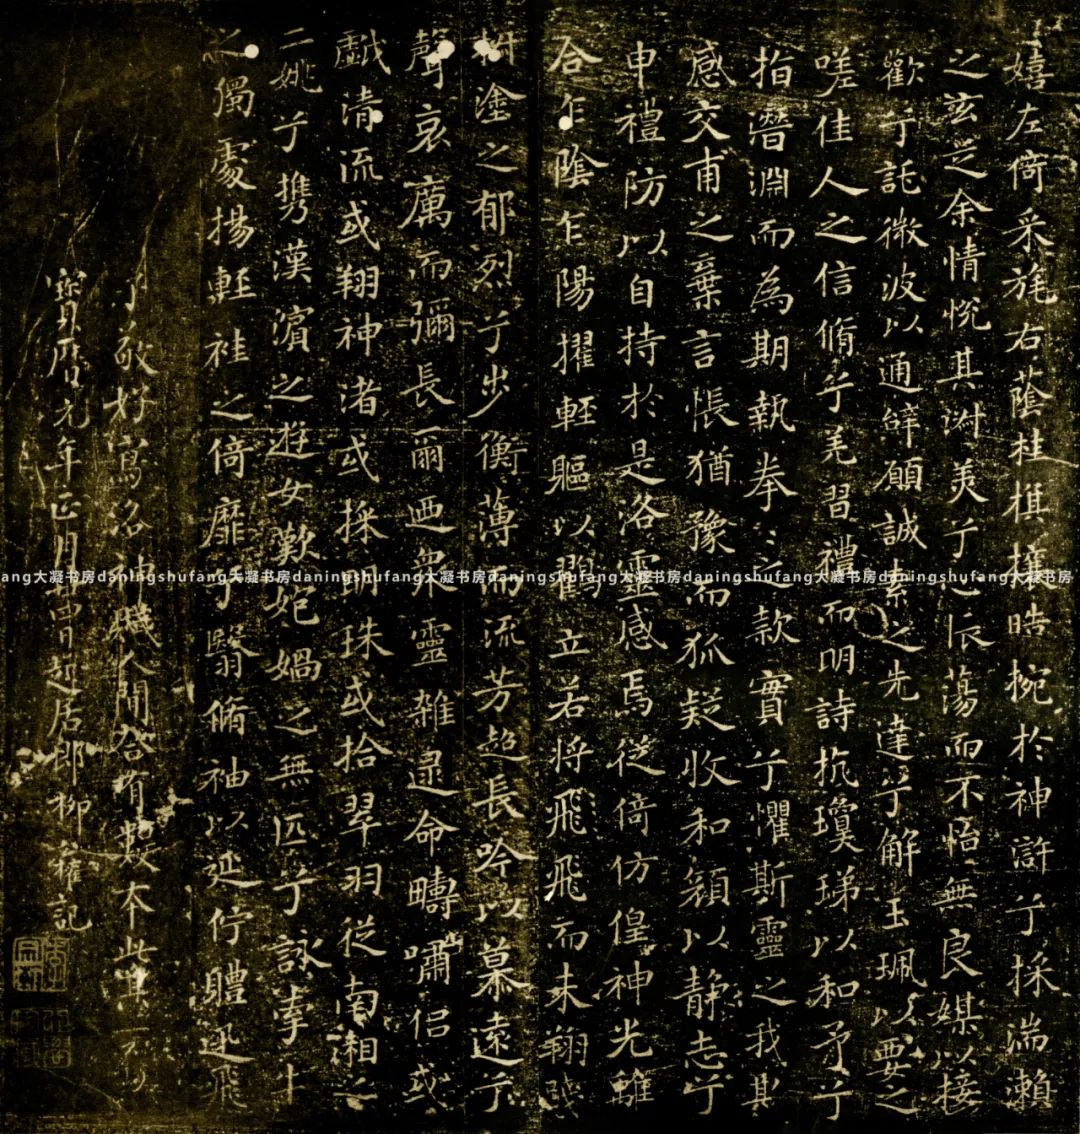 嬉左倚采旄右蔭桂棋攘晧捥於神滸兮採湍瀨
之玄芝余情悅其淑美兮心振蕩而不怡無良媒以接
歡兮託微波以通辭願誠素之先達兮解玉珮以要之
嗟佳人之信脩兮羌習禮而明詩抗瓊珶以和予兮
指潛淵而為期執拳〻之款實兮懼斯靈之我欺
感交甫之棄言悵猶豫而狐疑收和顏以静志兮
申禮防以自持於是洛靈感焉徙倚仿偟神光離
合乍陰乍陽擢輕軀以鶴立若将飛飛而未翔踐
椒塗之郁烈兮步衡薄而流芳超長吟以慕遠兮
聲哀厲而彌長爾迺衆靈雜遝命疇嘯侶或
戲清流或翔神渚或採明珠或拾翠羽從南湘之
二姚兮攜漢濱之遊女歎匏媧之無匹兮詠牽牛
之獨處揚輕袿之倚靡兮翳脩袖以延佇體迅飛
子敬好寫洛神賦人間合有數本此其一
寶曆元年正月廿四日起居郎柳權記
ang大凝书房daningshufang大凝书房daningshufang大凝书房daningshufang大凝书房daningshufang大凝书房